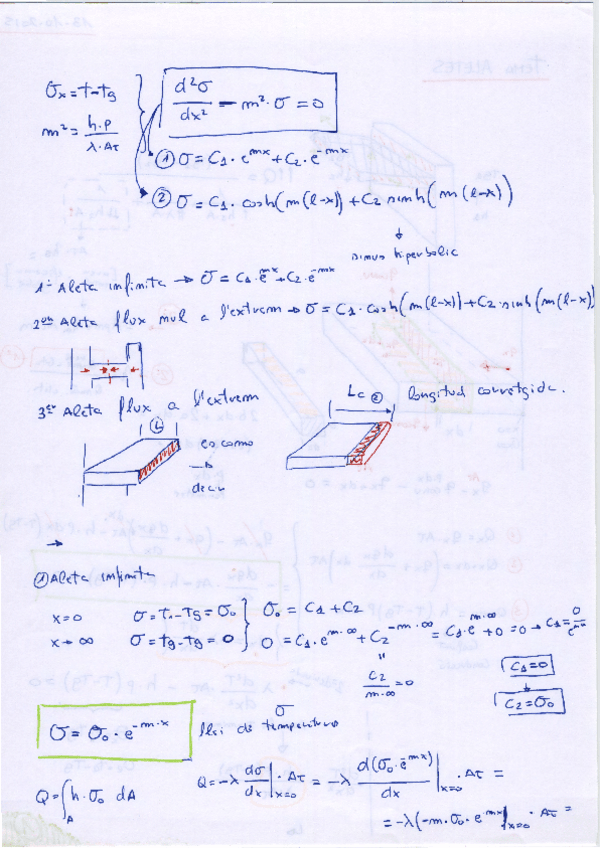 σx = t - tg
m² = h·P / λ·Aτ
d²σ/dx² - m²·σ = 0
① σ = C1·e^mx + C2·e^-mx
② σ = C1·cosh(m(l-x)) + C2 sinh(m(l-x))
sinus hiperbolic
1ª Aleta infinita → σ = C1·e^mx + C2·e^-mx
2ona Aleta flux nul a l'extrem → σ = C1·cosh(m(l-x)) + C2·sinh(m(l-x))
3er Aleta flux a l'extrem
Lc ② longitud corretgida.
①
es como
decir
→
① Aleta infinita
x=0 σ = To - Tg = σo } σo = C1 + C2
x→∞ σ = tg - tg = 0 } 0 = C1·e^m·∞ + C2^-m·∞ = C1·e^m·∞ + 0 = 0 → C1 = 0/e^m∞
C2/m·∞ = 0
C1=0
C2=σo
σ = σo·e^-m·x
llei de temperatura
σ
Q = ∫A h·σo dA
Q = -λ dσ/dx |x=0 · Aτ = -λ d(σo·e^-mx)/dx |x=0 · Aτ =
= -λ(-m·σo·e^-mx |x=0 · Aτ =